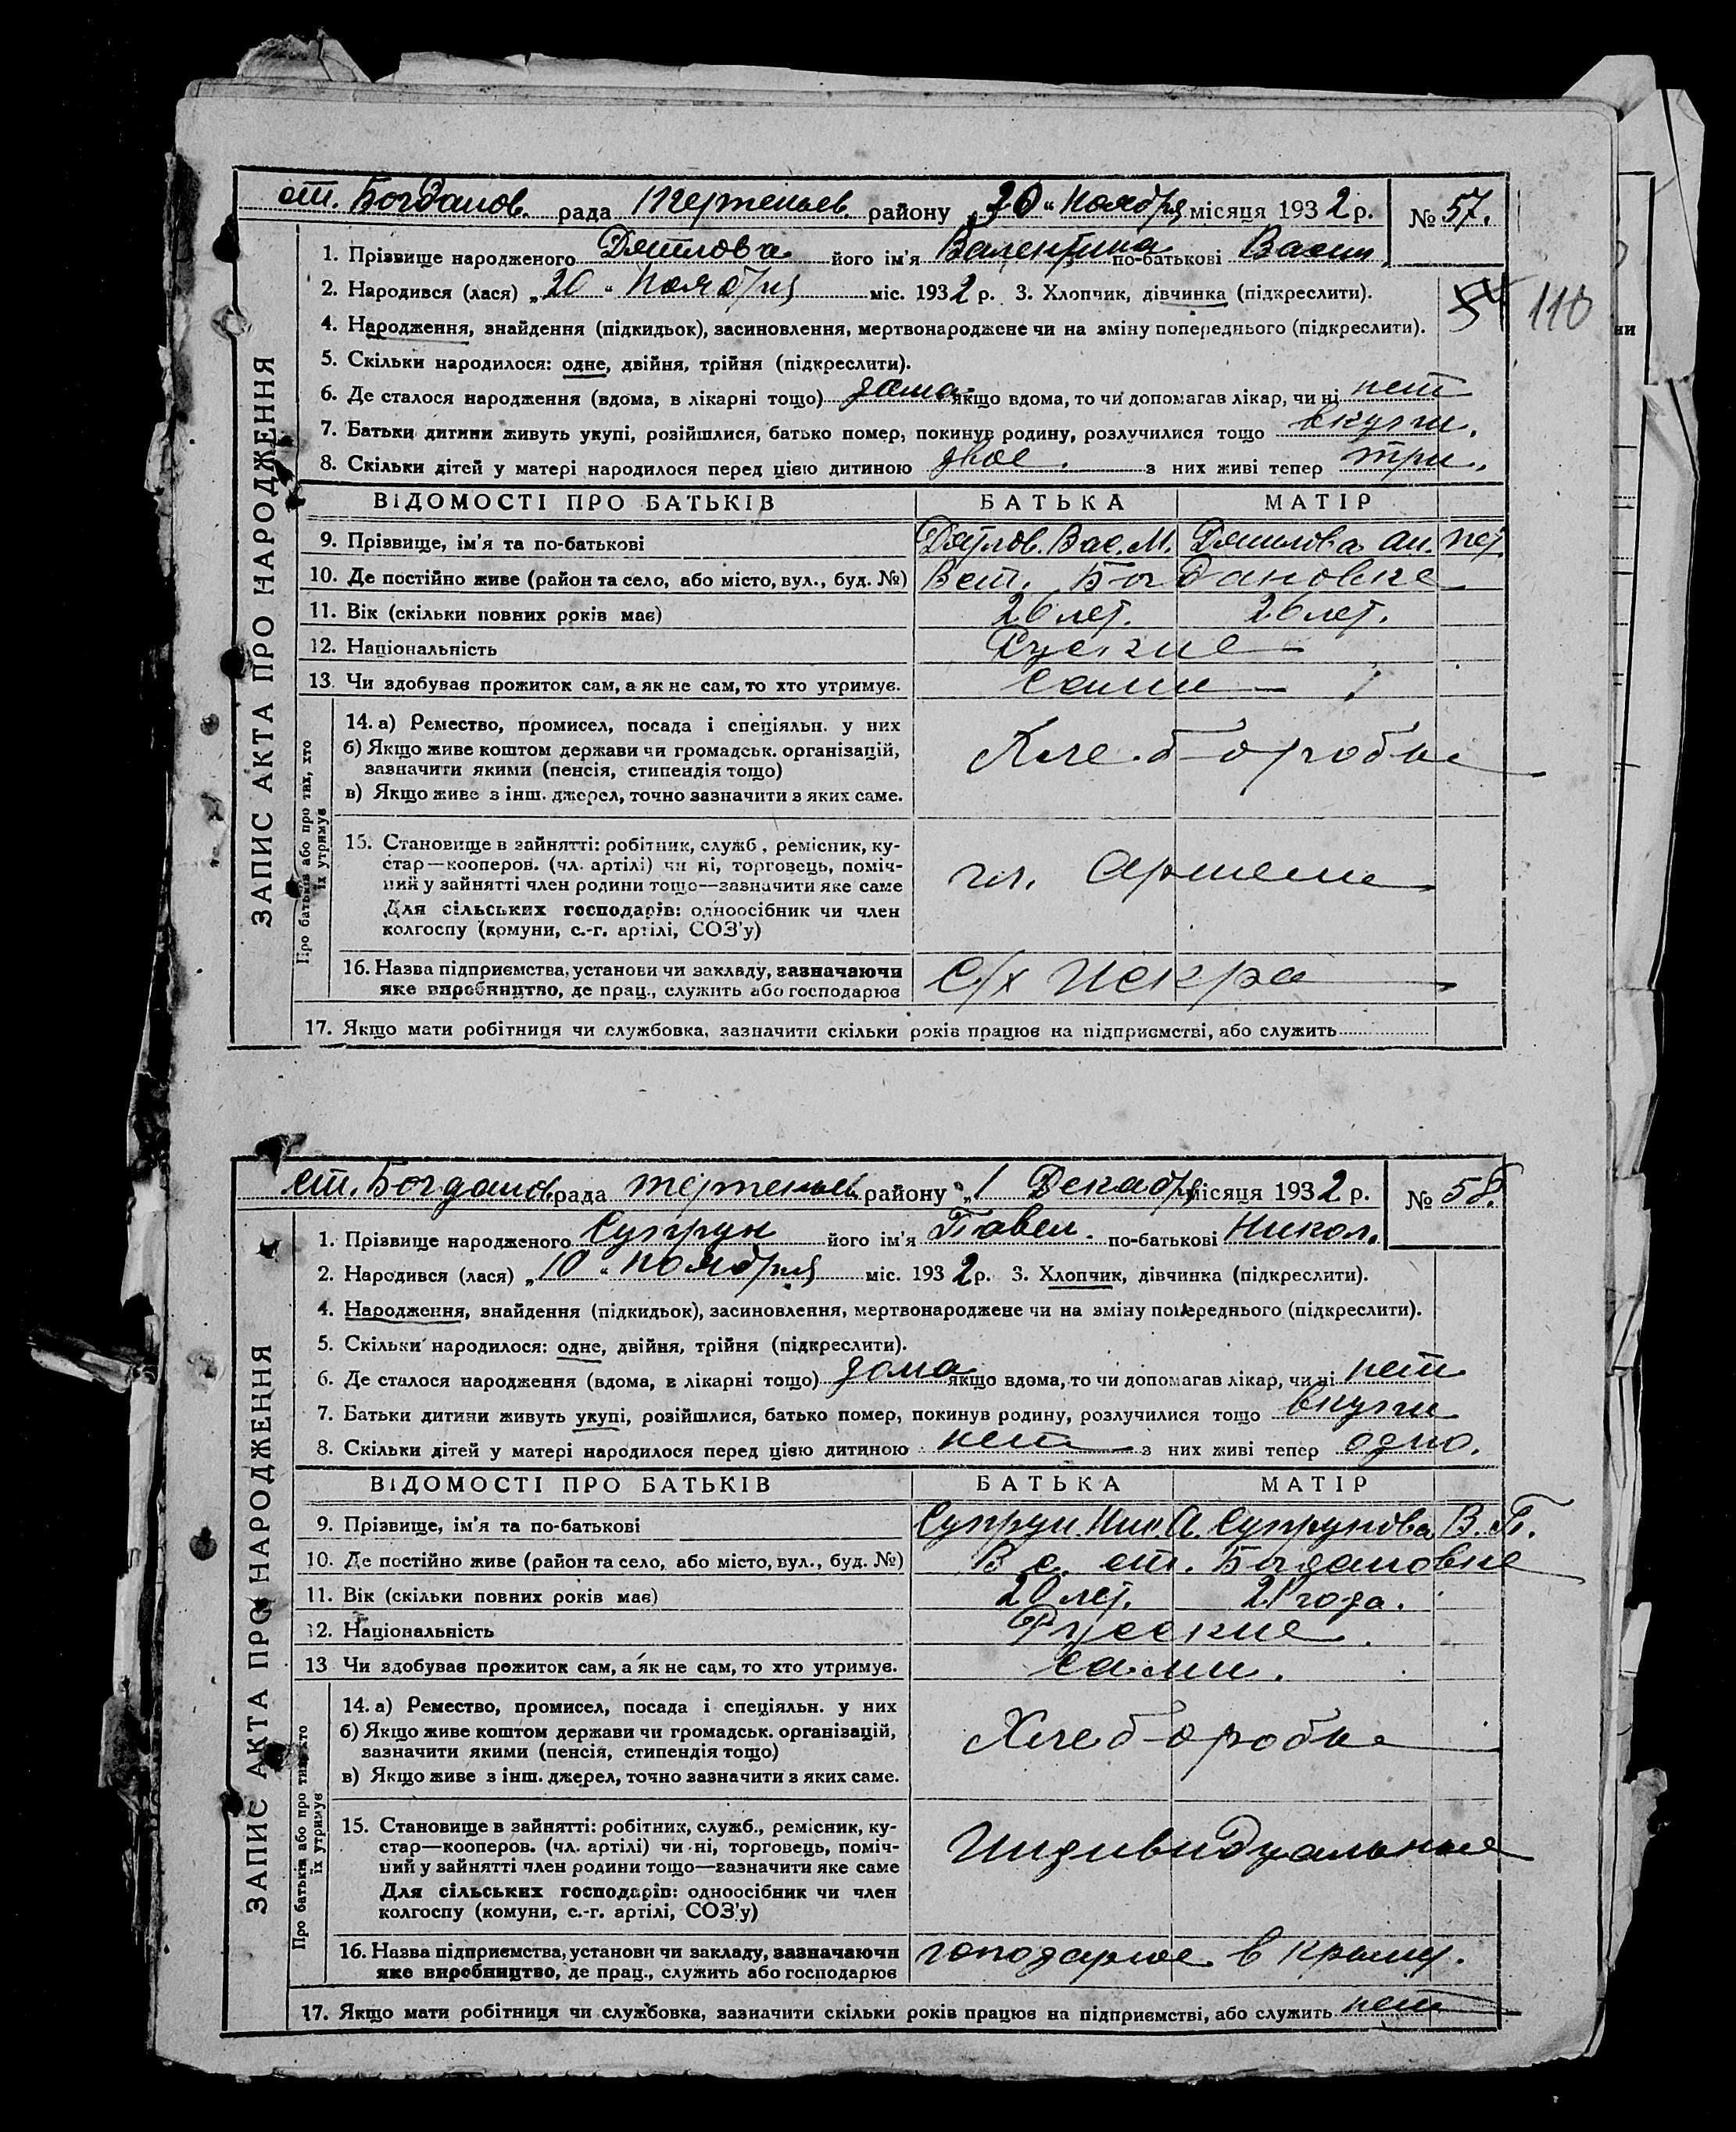 ст. Богданов. рада Терпеньев. району „20“ Ноября місяця 1932 р. № 57.
1. Прізвище народженого Дятлова його ім'я Валентина по-батькові Васил.
2. Народився (лася) „20“ Ноября міс. 1932 р. 3. Хлопчик, дівчинка (підкреслити).
110
4. Народження, знайдення (підкидьок), засиновлення, мертвонароджене чи на зміну попереднього (підкреслити).
5. Скільки народилося: одне, двійня, трійня (підкреслити).
6. Де сталося народження (вдома, в лікарні тощо) дома якщо вдома, то чи допомагав лікар, чи ні нет
7. Батьки дитини живуть укупі, розійшлися, батько помер, покинув родину, розлучилися тощо вкупи.
8. Скільки дітей у матері народилося перед цією дитиною двое. з них живі тепер три.
ВІДОМОСТІ ПРО БАТЬКІВ БАТЬКА МАТІР
9. Прізвище, ім'я та по-батькові Дятлов. Вас. М. Дятлова Ан. Пет.
10. Де постійно живе (район та село, або місто, вул., буд. №) В ст. Богдановке
11. Вік (скільки повних років має) 26 лет. 26 лет.
12. Національність Руские
13. Чи здобував прожиток сам, а як не сам, то хто утримує. Сами
14. а) Ремество, промисел, посада і спеціяльн. у них
б) Якщо живе коштом держави чи громадськ. організацій,
зазначити якими (пенсія, стипендія тощо)
Хлеборобы
в) Якщо живе з інш. джерел, точно зазначити з яких саме.
15. Становище в зайнятті: робітник, служб., ремісник, ку-
стар—кооперов. (чл. артілі) чи ні, торговець, поміч-
ний у зайнятті член родини тощо—зазначити яке саме
чл. Артели
Для сільських господарів: одноосібник чи член
колгоспу (комуни, с.-г. артілі, СОЗ'у)
16. Назва підприємства, установи чи закладу, зазначаючи
яке виробництво, де прац., служить або господарює
С/х Искра
17. Якщо мати робітниця чи службовка, зазначити скільки років працює на підприємстві, або служить
ЗАПИС АКТА ПРО НАРОДЖЕННЯ
Про батьків або про тих, хто
їх утримує
ст. Богданов. рада Терпеньев. району „1 Декабря місяця 1932 р. № 58.
1. Прізвище народженого Супрун його ім'я Павел. по-батькові Никол.
2. Народився (лася) „10“ Ноября міс. 1932 р. 3. Хлопчик, дівчинка (підкреслити).
4. Народження, знайдення (підкидьок), засиновлення, мертвонароджене чи на зміну попереднього (підкреслити).
5. Скільки народилося: одне, двійня, трійня (підкреслити).
6. Де сталося народження (вдома, в лікарні тощо) дома якщо вдома, то чи допомагав лікар, чи ні нет
7. Батьки дитини живуть укупі, розійшлися, батько помер, покинув родину, розлучилися тощо вкупи
8. Скільки дітей у матері народилося перед цією дитиною нет з них живі тепер одно.
ВІДОМОСТІ ПРО БАТЬКІВ БАТЬКА МАТІР
9. Прізвище, ім'я та по-батькові Супрун Ник. А. Супрунова В. П.
10. Де постійно живе (район та село, або місто, вул., буд. №) В с. ст. Богдановке
11. Вік (скільки повних років має) 20 лет. 21 года.
12. Національність Русские.
13 Чи здобував прожиток сам, а як не сам, то хто утримує. Сами.
14. а) Ремество, промисел, посада і спеціяльн. у них
б) Якщо живе коштом держави чи громадськ. організацій,
зазначити якими (пенсія, стипендія тощо)
Хлеборобы
в) Якщо живе з інш. джерел, точно зазначити з яких саме.
15. Становище в зайнятті: робітник, служб., ремісник, ку-
стар—кооперов. (чл. артілі) чи ні, торговець, поміч-
ний у зайнятті член родини тощо—зазначити яке саме
Индивидуальные
Для сільських господарів: одноосібник чи член
колгоспу (комуни, с.-г. артілі, СОЗ'у)
16. Назва підприємства, установи чи закладу, зазначаючи
яке виробництво, де прац., служить або господарює
в Крыму.
17. Якщо мати робітниця чи службовка, зазначити скільки років працює на підприємстві, або служить нет
ЗАПИС АКТА ПРО НАРОДЖЕННЯ
Про батьків або про тих, хто
їх утримує